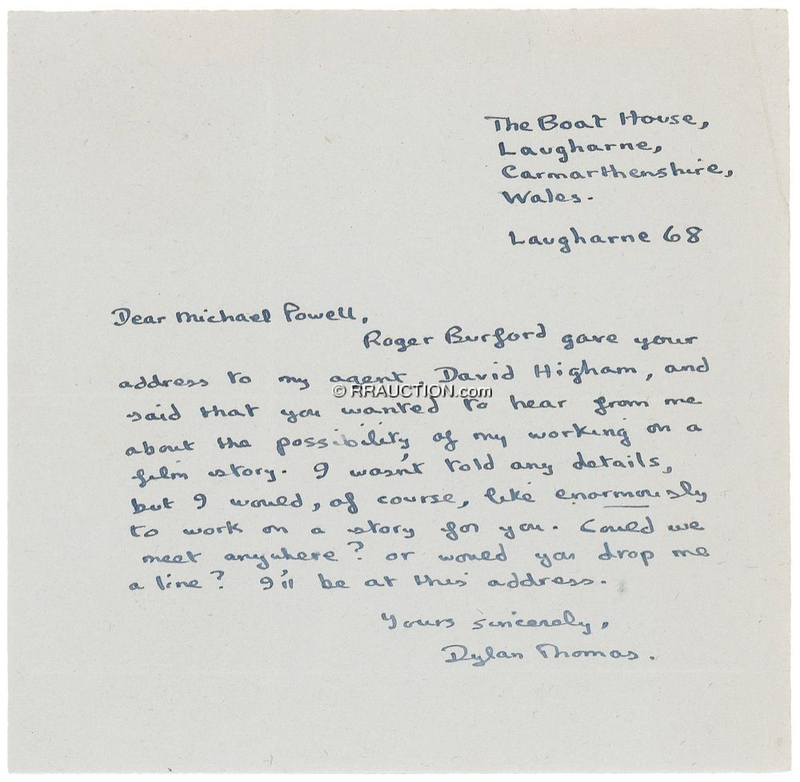 The Boat House,
Laugharne,
Carmarthenshire,
Wales.
Laugharne 68
Dear Michael Powell,
Roger Burford gave your
address to my agent David Higham, and
© RRAUCTION.com
said that you wanted to hear from me
about the possibility of my working on a
film story. I wasn't told any details,
but I would, of course, like enormously
to work on a story for you. Could we
meet anywhere? or would you drop me
a line? I'll be at this address.
Yours sincerely,
Dylan Thomas.